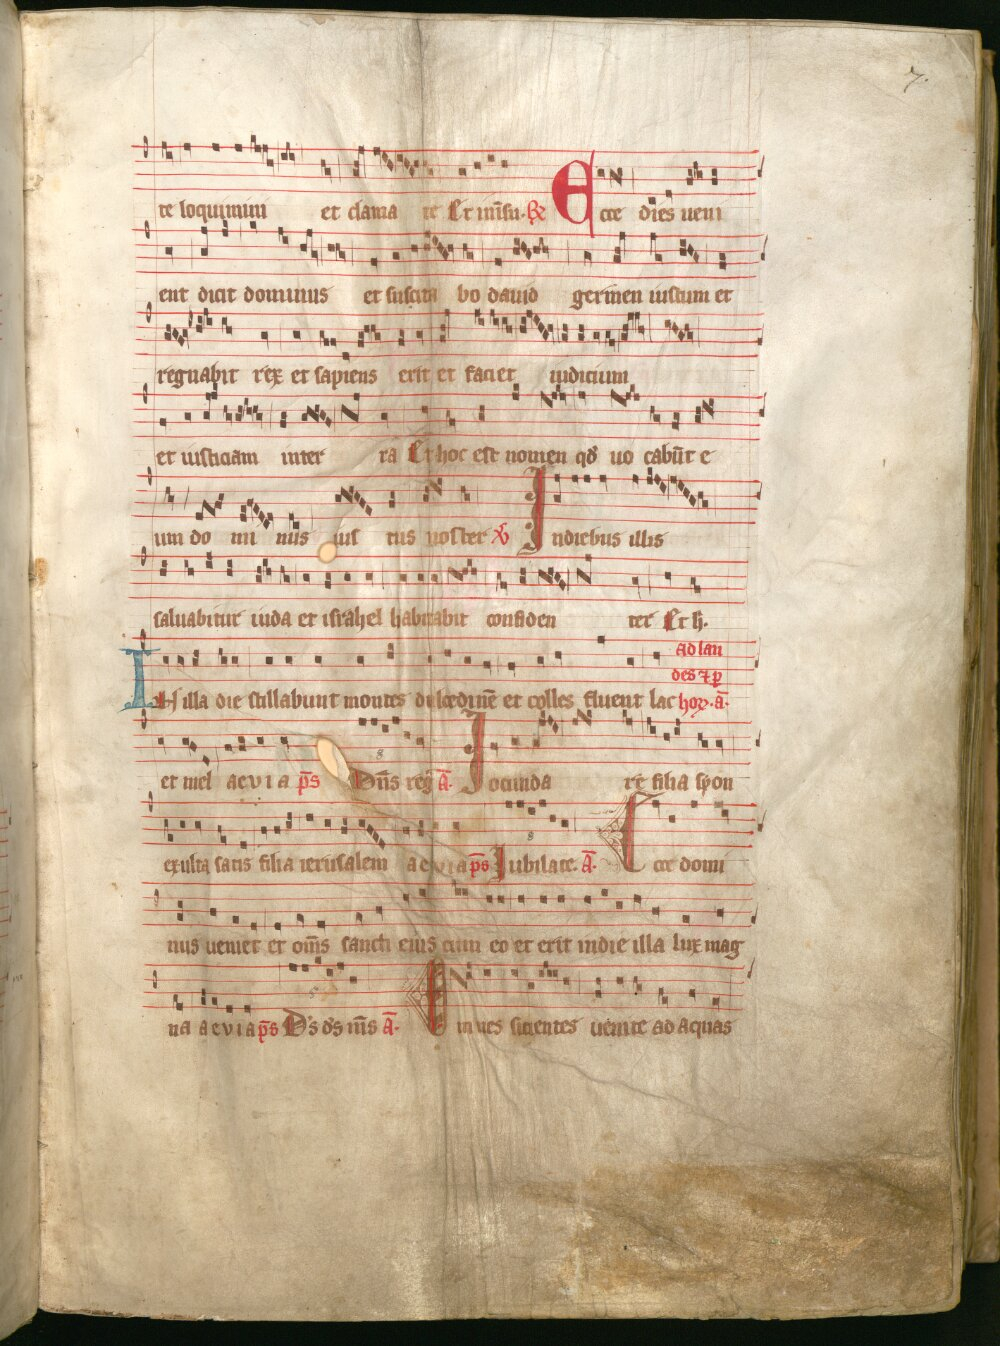 7.
te loquimini et clama te Et in īsu. R̄ Ecce dies veni
ent dicit dominus et suscita bo dauid germen iustum et
regnabit rex et sapiens erit et faciet iudicium
et iusticiam in ter ra Et hoc est nomen qd uo cabūt e
um do mi nus ius tus noster V̄ In diebus illis
saluabitur iuda et israhel habitabit confiden ter Et h.
ad lau
des 7 p
In illa die stillabunt montes dulcedinē et colles fluent lac hor. ā.
et mel aevia p̄s Dn̄s reg̃ Ā. Iocunda re filia syon
exulta satis filia ierusalem aevia p̄s Iubilate. Ā. Ecce domi
nus ueniet et om̄s sancti eius cum eo et erit in die illa lux mag
na aevia p̄s Ds ds ms Ā. Omnes sicientes uenite ad aquas